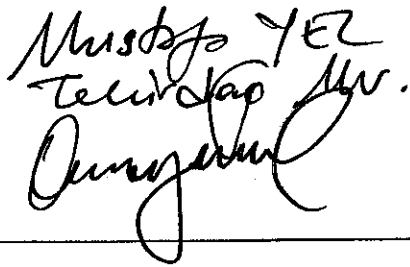 Mustafa YEL
Tekirdağ Mv.